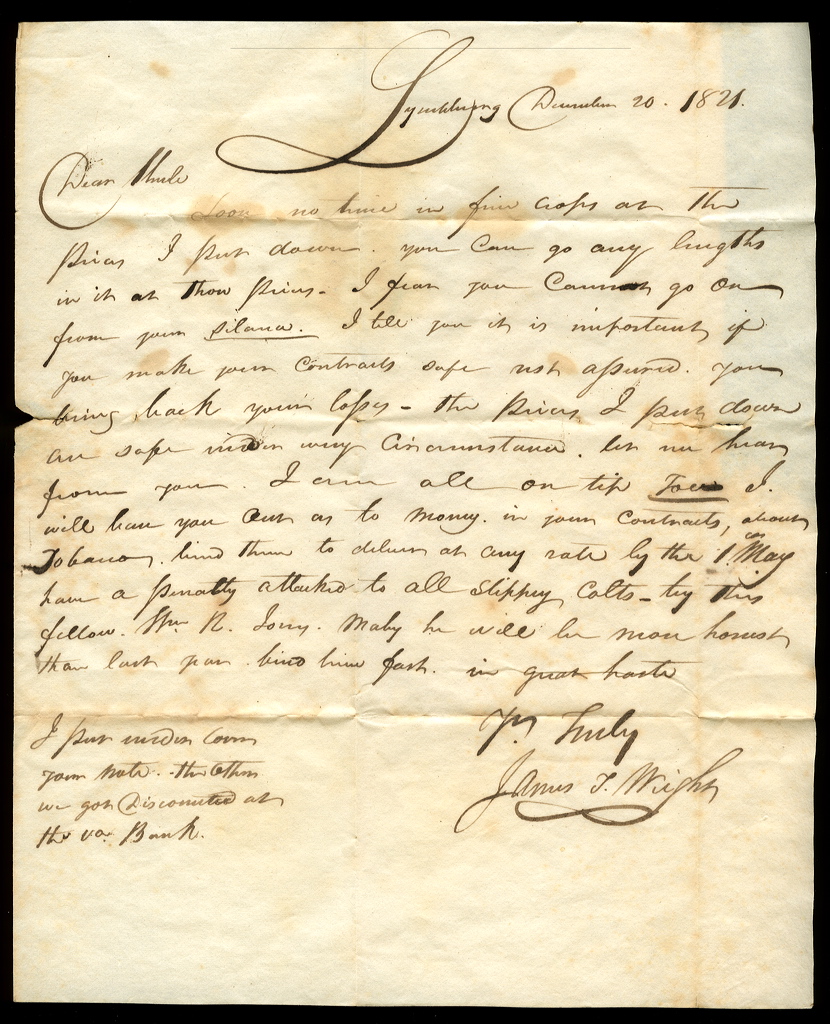 Lynchburg December 20. 1821.
Dear Uncle
Loose no time in fine crops at the
prices I put down. you can go any lengths
in it at those prices - I fear you Cannot go on
from your silance. I tell you it is important, if
you make your contracts safe rest assured. you
bring back your losses - the prices I put down
are safe under every Circumstance. let me hear
from you. I am all on tip Toes I.
will bear you out as to money. in your Contracts, about
Tobacco, bind them to deliver at any rate by the 1. May
have a penalty attached to all slippery Colts - try this
fellow. Wm R. Maby he will be more honest
than last year. bind him fast. in great haste
Yrs Truly
James T. Wright
I put under Cover
your note. the others
we got Discounted at
the va. Bank.